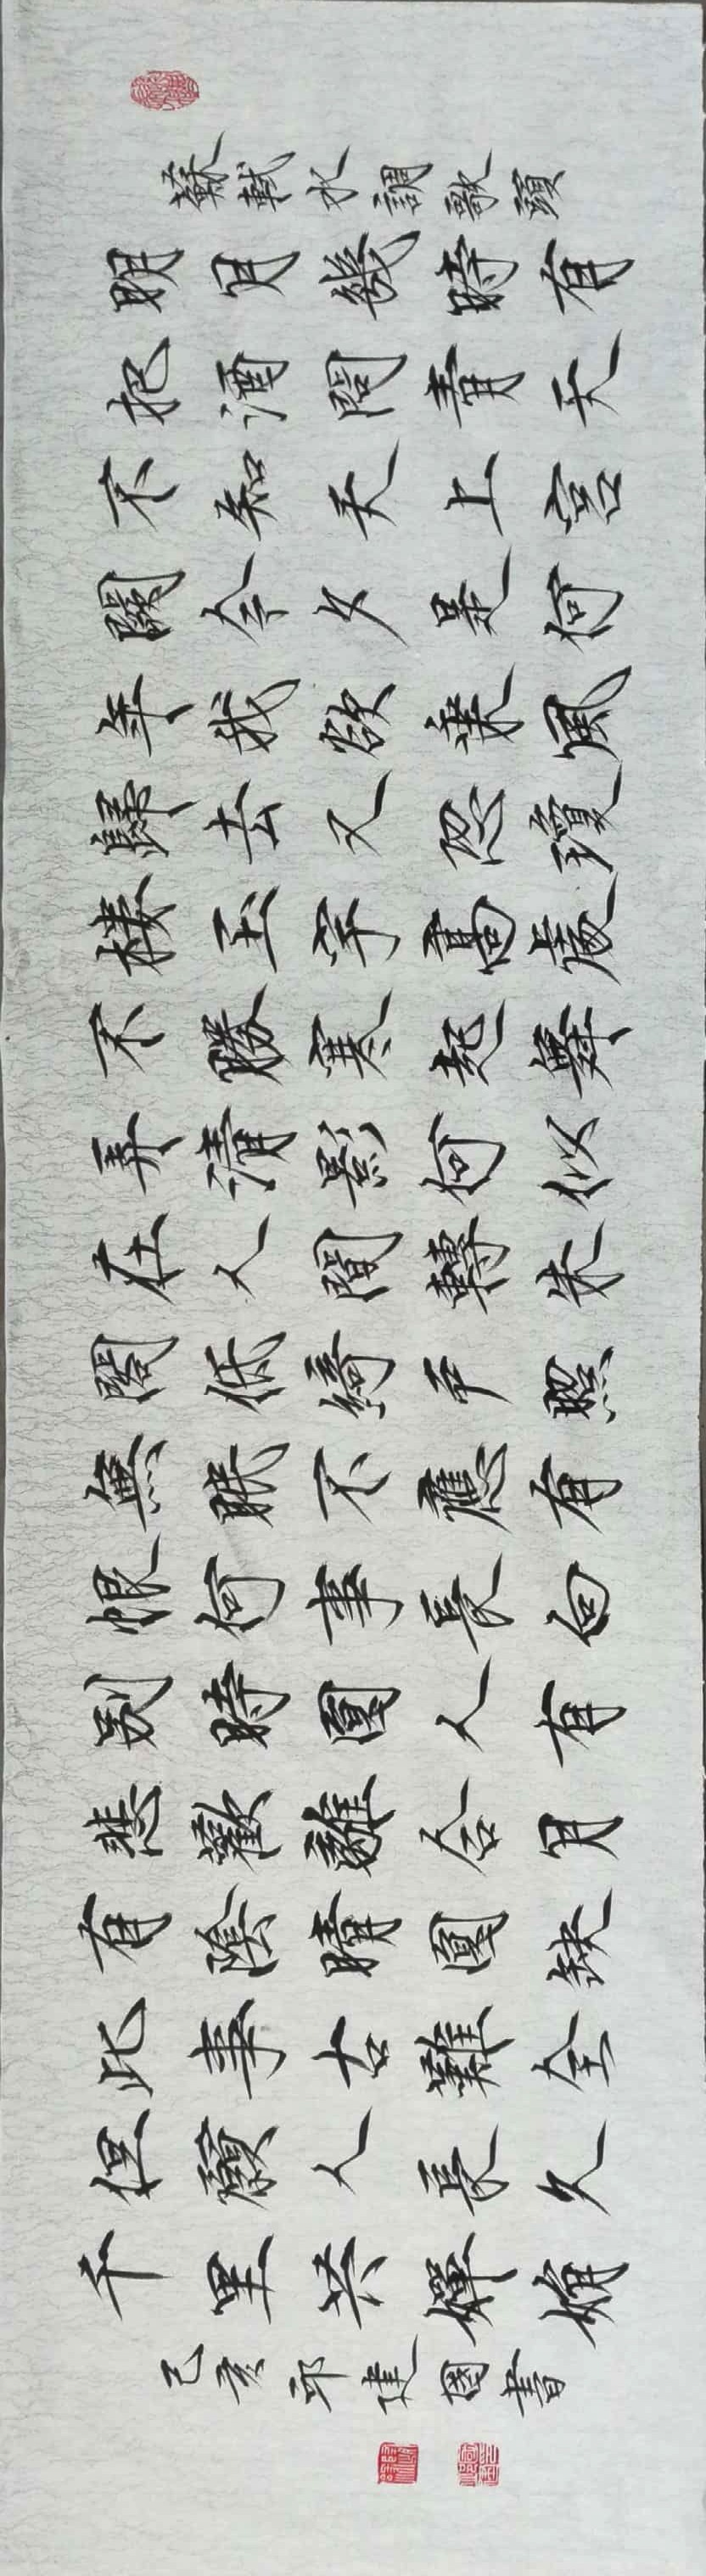 蘇軾水調歌頭
明月幾時有
把酒問青天
不知天上宮
闕今夕是何
年我欲乘風
歸去又恐瓊
樓玉宇高處
不勝寒起舞
弄清影何似
在人間轉朱
閣低綺戶照
無眠不應有
恨何事長向
別時圓人有
悲歡離合月
有陰晴圓缺
此事古難全
但願人長久
千里共嬋娟
己亥邱建國書